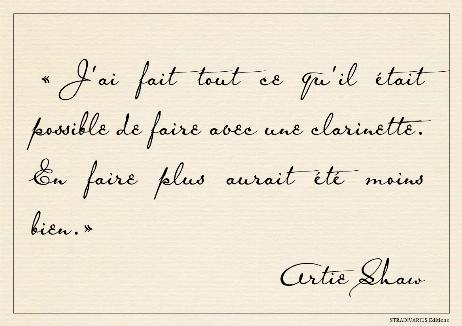 « J'ai fait tout ce qu'il était
possible de faire avec une clarinette.
En faire plus aurait été moins
bien.»
Artie Shaw
STRADIVARIUS Editions